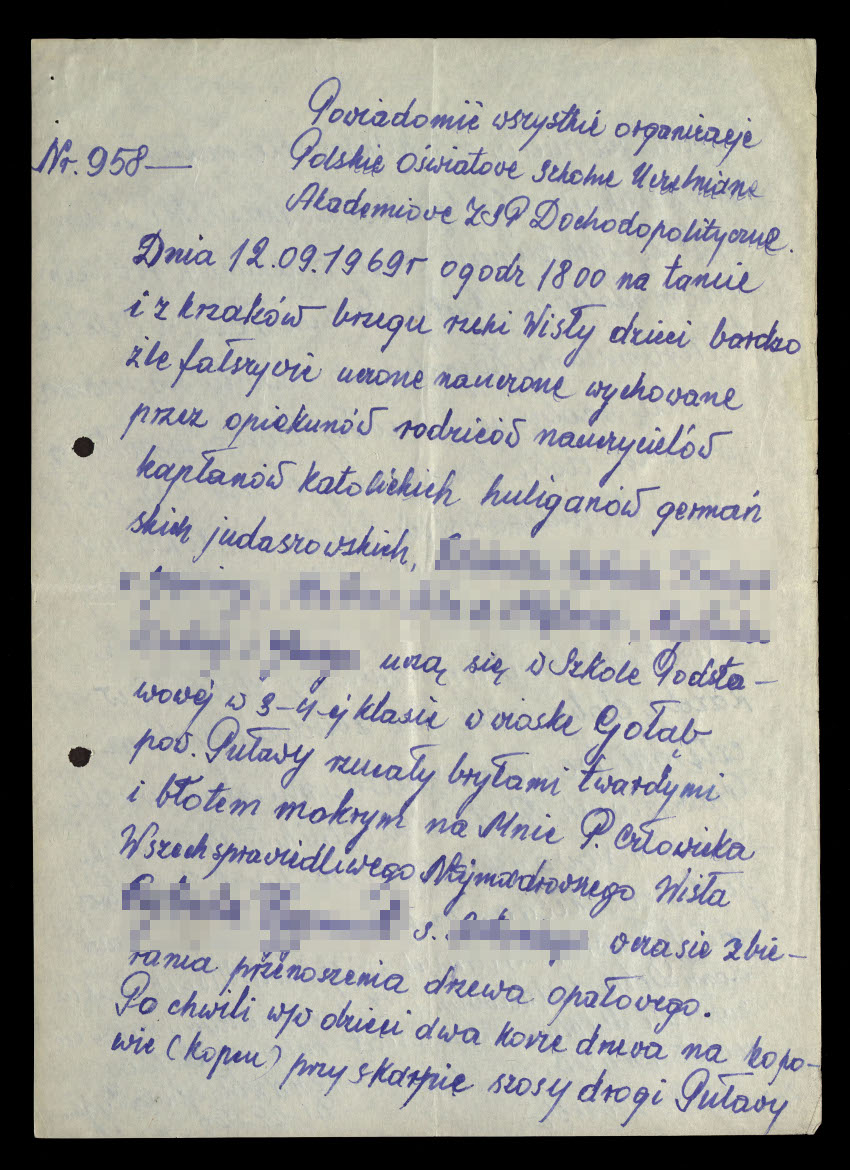 Powiadomić wszystkie organizacje
Nr. 958—
Polskie Oświatove Szkolne Uczelniane
Akademiove ZSP Dochodopolityczne.
Dnia 12.09.1969r ogodz 1800 na tamie
i z krzaków brzegu rzeki Wisły dzieci bardzo
źle fałszyvie uczone nauczone wychovane
przez opiekunóv rodzicóv nauczycielóv
kapłanóv katolickich huliganóv germań
skich judaszowskich,
uczą się v Szkole Podsta—
wovej w 3-4-ej klasie v vioske Gołąb
pov. Puławy rzucały bryłami twardymi
i błotem mokrym na Mnie P. Człowieka
Wszechspraviedlivego Najmądrovszego Wisła
s. vczasie zbie—
rania przenoszenia drzewa opałovego.
Po chwili w/v dzieci dwa kosze drzeva na kopo—
wie (kopcu) przy skarpie szosy drogi Puławy